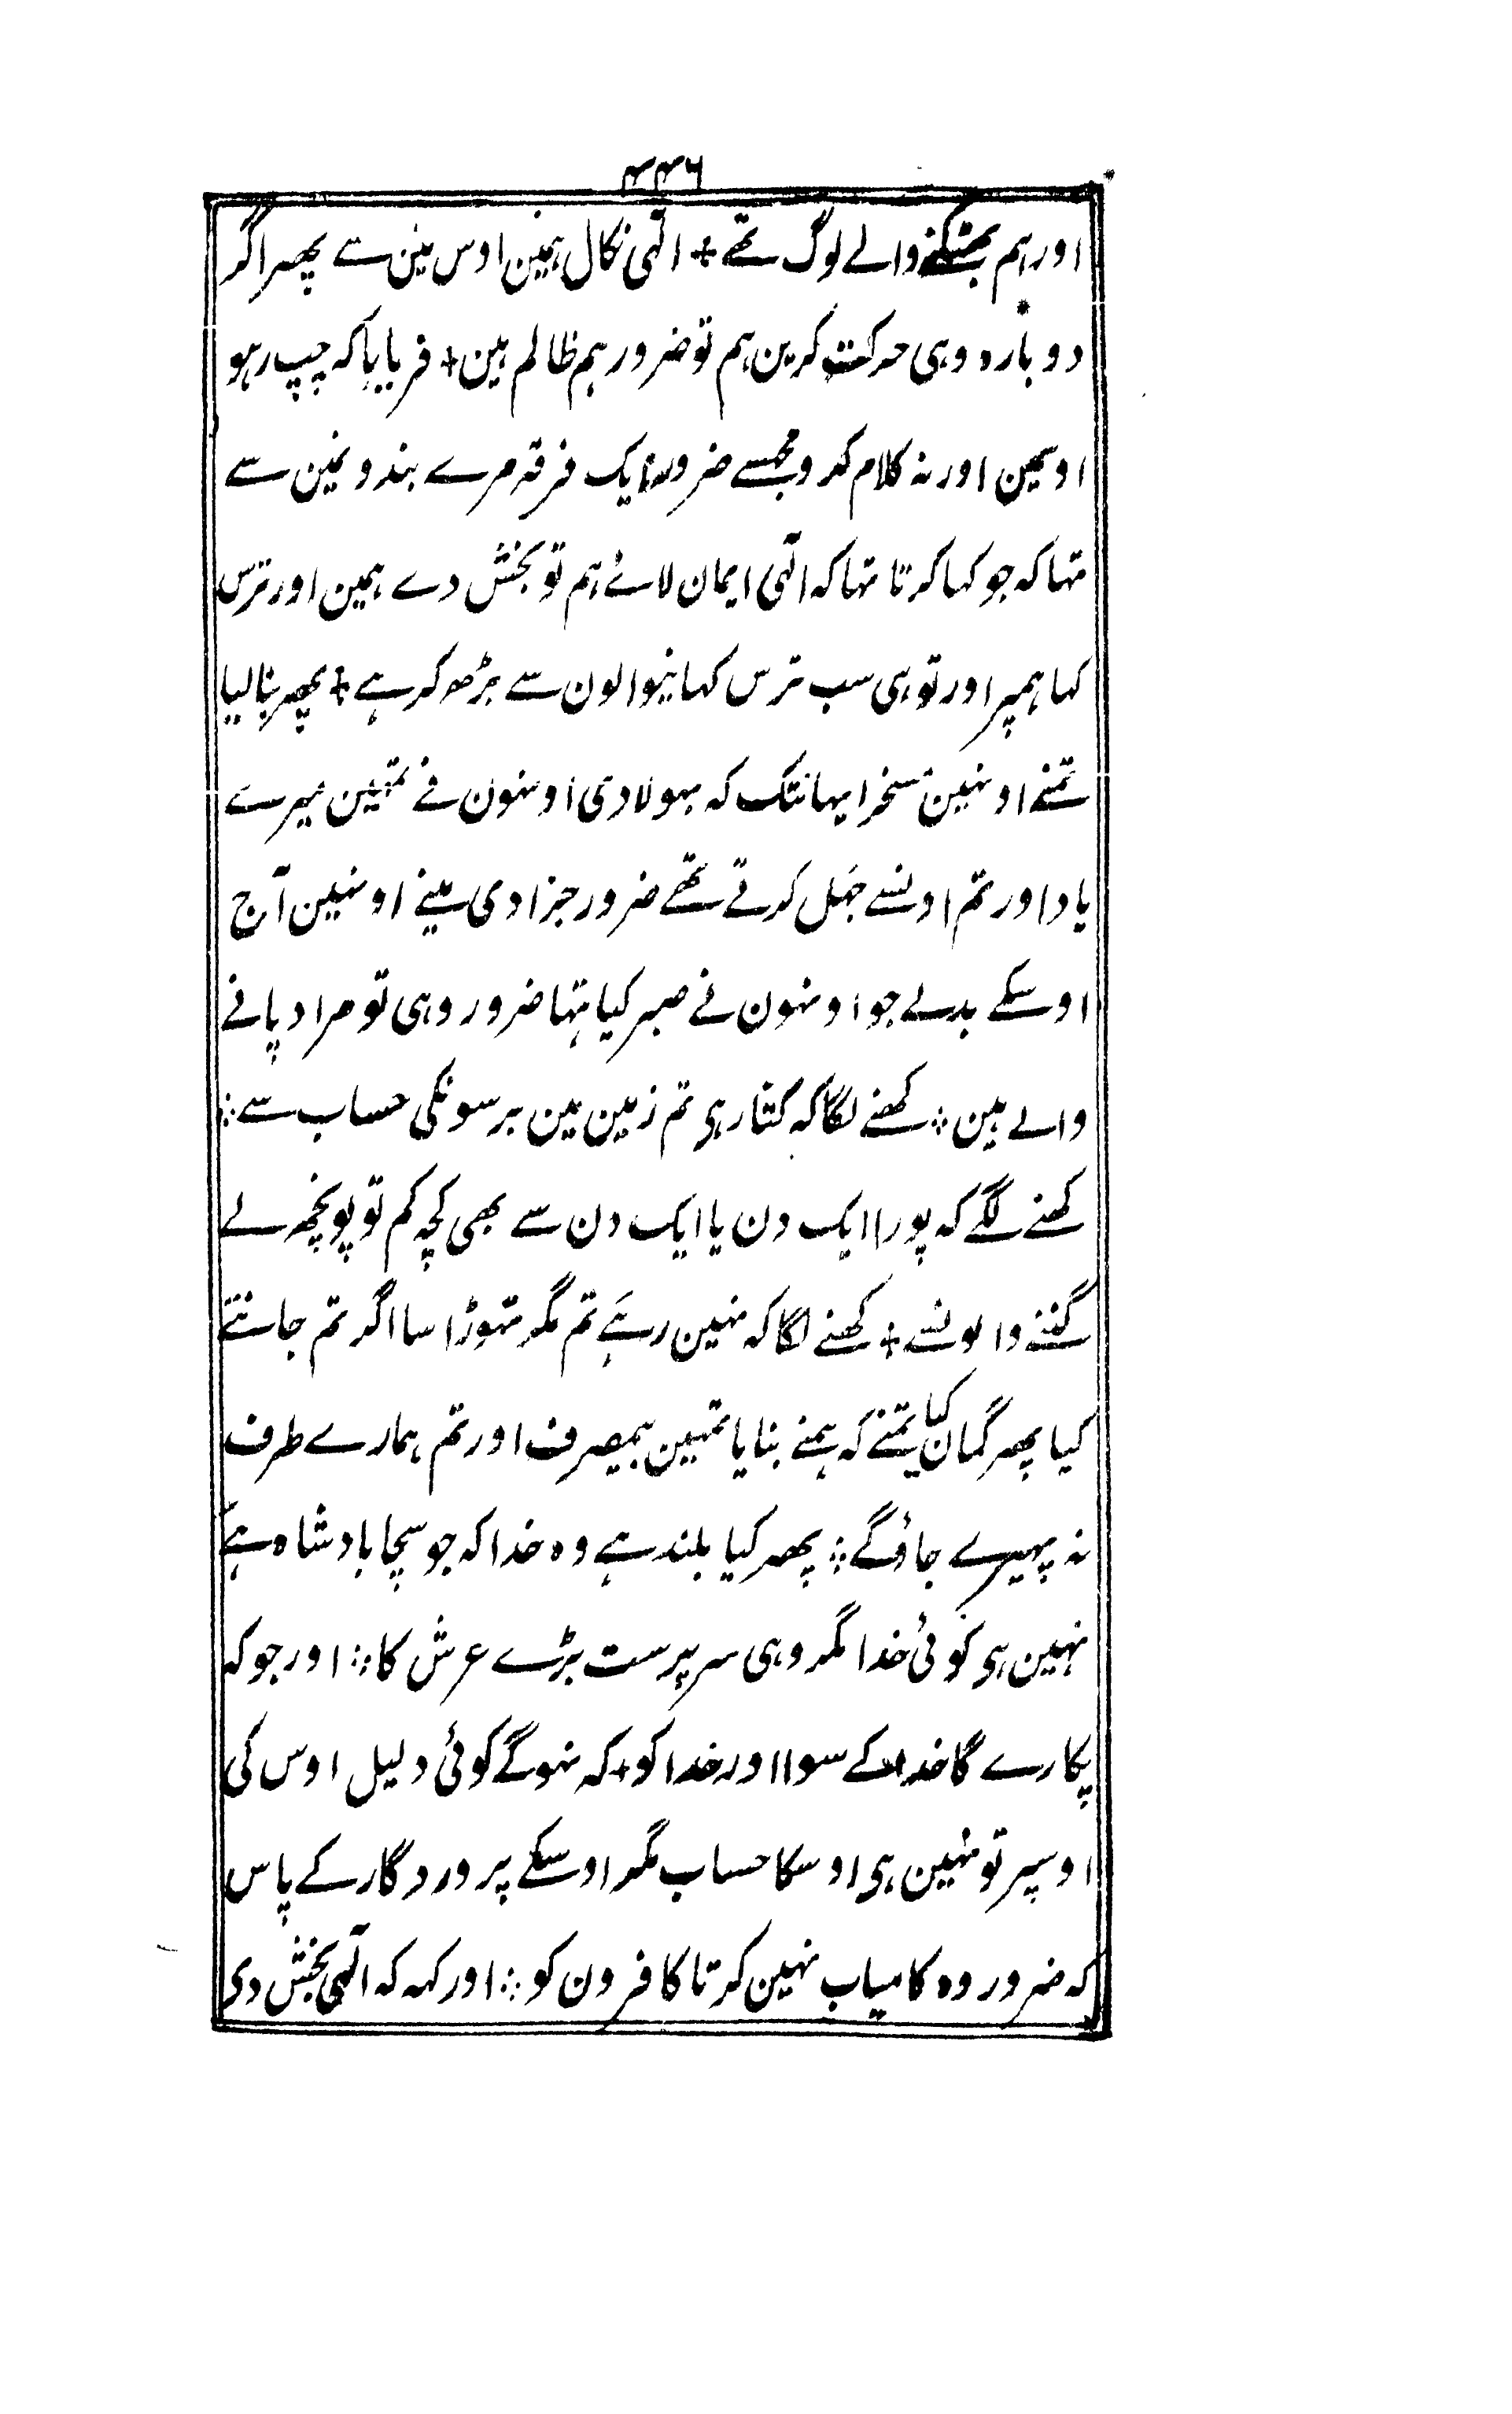 ۴۴۶
اور ہم بھٹکنے والے لوگ تھے + الٰہی نکال ہمین اوس مین سے پھر اگر
دوبارہ وہی حرکت کرین ہم تو ضرور ہم ظالم ہین + فرمایا کہ چپ رہو
اوسمین اور نہ کلام کرو مجھسے ضرور ایک فرقہ مرے بندونمین سے
تہا کہ جو کہا کرتا تہا کہ الٰہی ایمان لائے ہم تو بخش دے ہمین اور ترس
کہا ہمپر اور تو ہی سب ترس کہانیوالون سے بڑھ کر ہے + پھر بنا لیا
تمنے اونہین مسخرا یہانتک کہ بہولا دی اونہون نے تمہین میرے
یاد اور تم اونسے جہل کرتے تھے ضرور جزا دی مینے اونہین آج
اوسکے بدلے جو اونہون نے صبر کیا تہا ضرور وہی تو مراد پانے
والے ہین ؞ کھنے لگا کہ کتنا رہی تم زمین مین برسونکی حساب سے ؞
کھنے لگے کہ پورا ایک دن یا ایک دن سے بھی کچہ کم تو پونچھ لے
گننے والونسے + کھنے لگا کہ نہین رہے تم مگر تہوڑا سا اگر تم جانتے
کیا پھر گمان کیا تمنے کہ ہمنے بنایا تمہین بیمصرف اور تم ہمارے طرف
نہ پہیرے جاؤگے ؞ پھر کیا بلند ہے وہ خدا کہ جو سچا بادشاہ ہے
نہین ہی کوئی خدا مگر وہی سرپرست بڑے عرش کا ؞ اور جو کہ
پکارے گا خدا کے سوا اور خدا کو + کہ نہوگے کوئی دلیل اوس کی
اوسپر تو نہین ہی اوسکا حساب مگر اوسکے پروردگار کے پاس
کہ ضرور وہ کامیاب نہین کرتا کافرون کو ؞ اور کہہ کہ الٰہی بخش دی